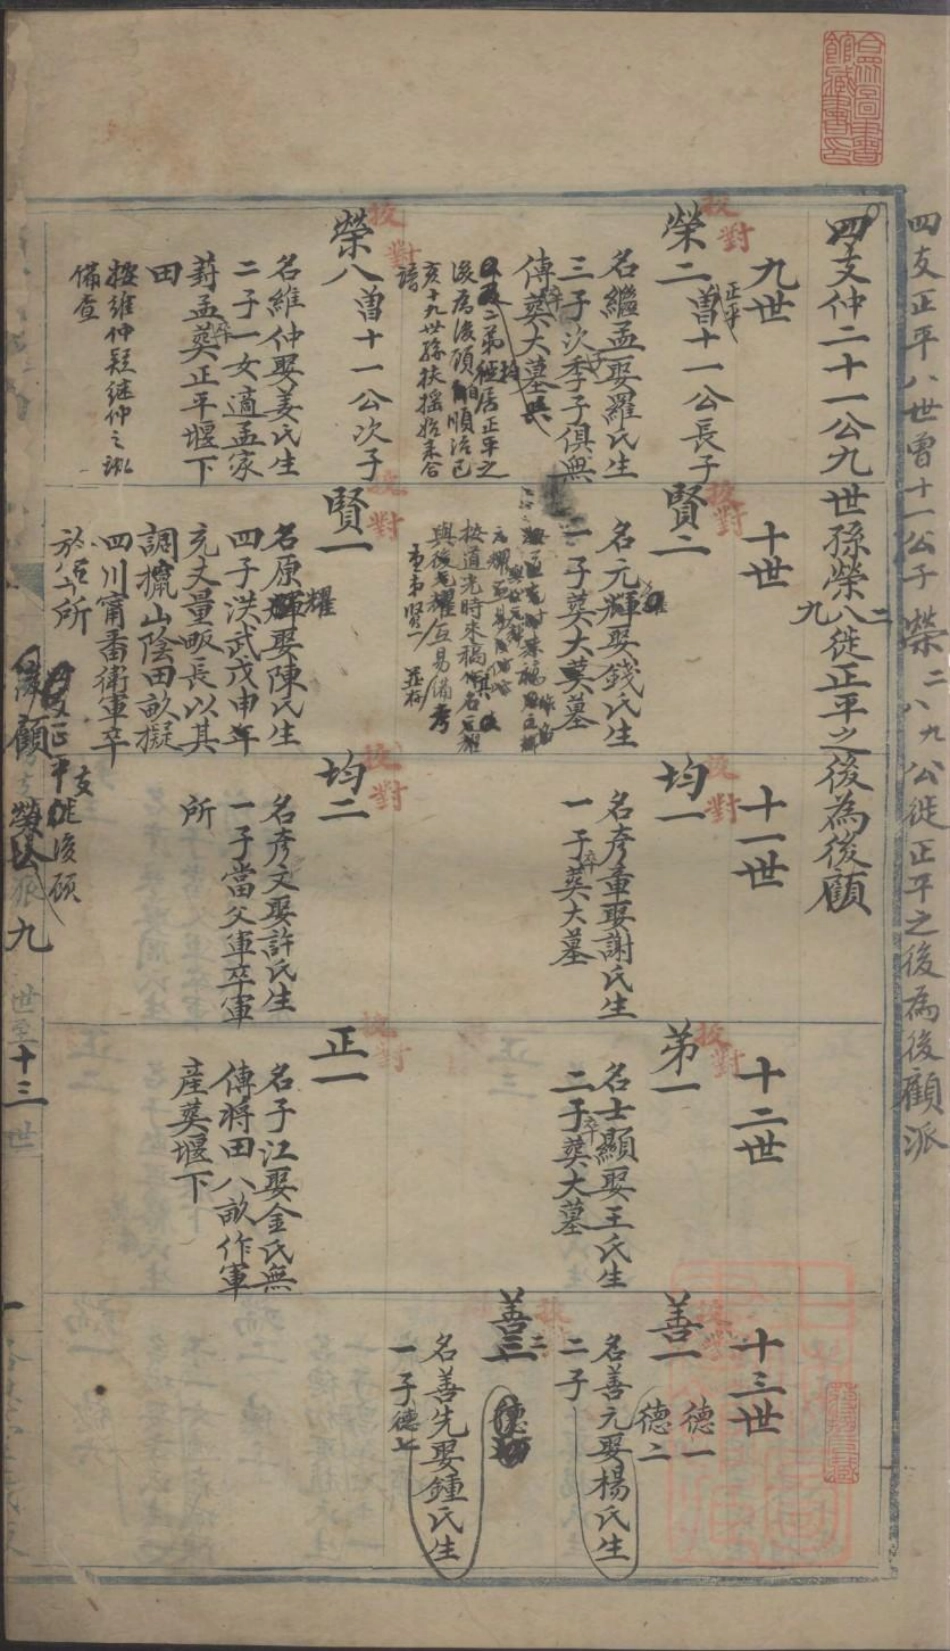 四支正平八世曾十一公子榮二八九公徙正平之後為後顧派
四支仲二十一公九世孫榮八徙正平之後為後顧
二
九
九世
榮二
曾十一公長子
正平
名繼孟娶羅氏生
三子次季子俱無
傳葬大墓
卒
後為後顧順治己
亥十九世孫扶搖始來合
譜
榮八
曾十一公次子
名維仲娶姜氏生
二子一女適孟家
葑孟葬正平堰下
卒
田
按維仲疑繼仲之訛
備查
十世
賢二
名元輝娶錢氏生
一子葬大墓
按道光時來稿
與後元耀互易備考
賢一
名原輝娶陳氏生
耀
四子洪武戊申年
充丈量畈長以其
調攛山陰田畝擬
四川甯番衛軍卒
於伍所
十一世
均一
名彥童娶謝氏生
一子葬大墓
卒
均二
名彥文娶許氏生
一子當父軍卒軍
所
十二世
第一
名士顯娶王氏生
二子葬大墓
卒
正一
名子江娶金氏無
傳將田八畝作軍
產葬堰下
十三世
善一
名善元娶楊氏生
二子
德一
德二
善三
二
名善先娶鍾氏生
一子德七
正平支徙後顧
後顧
九世至十三世
校對
校對
校對
校對
校對
校對
校對
校對